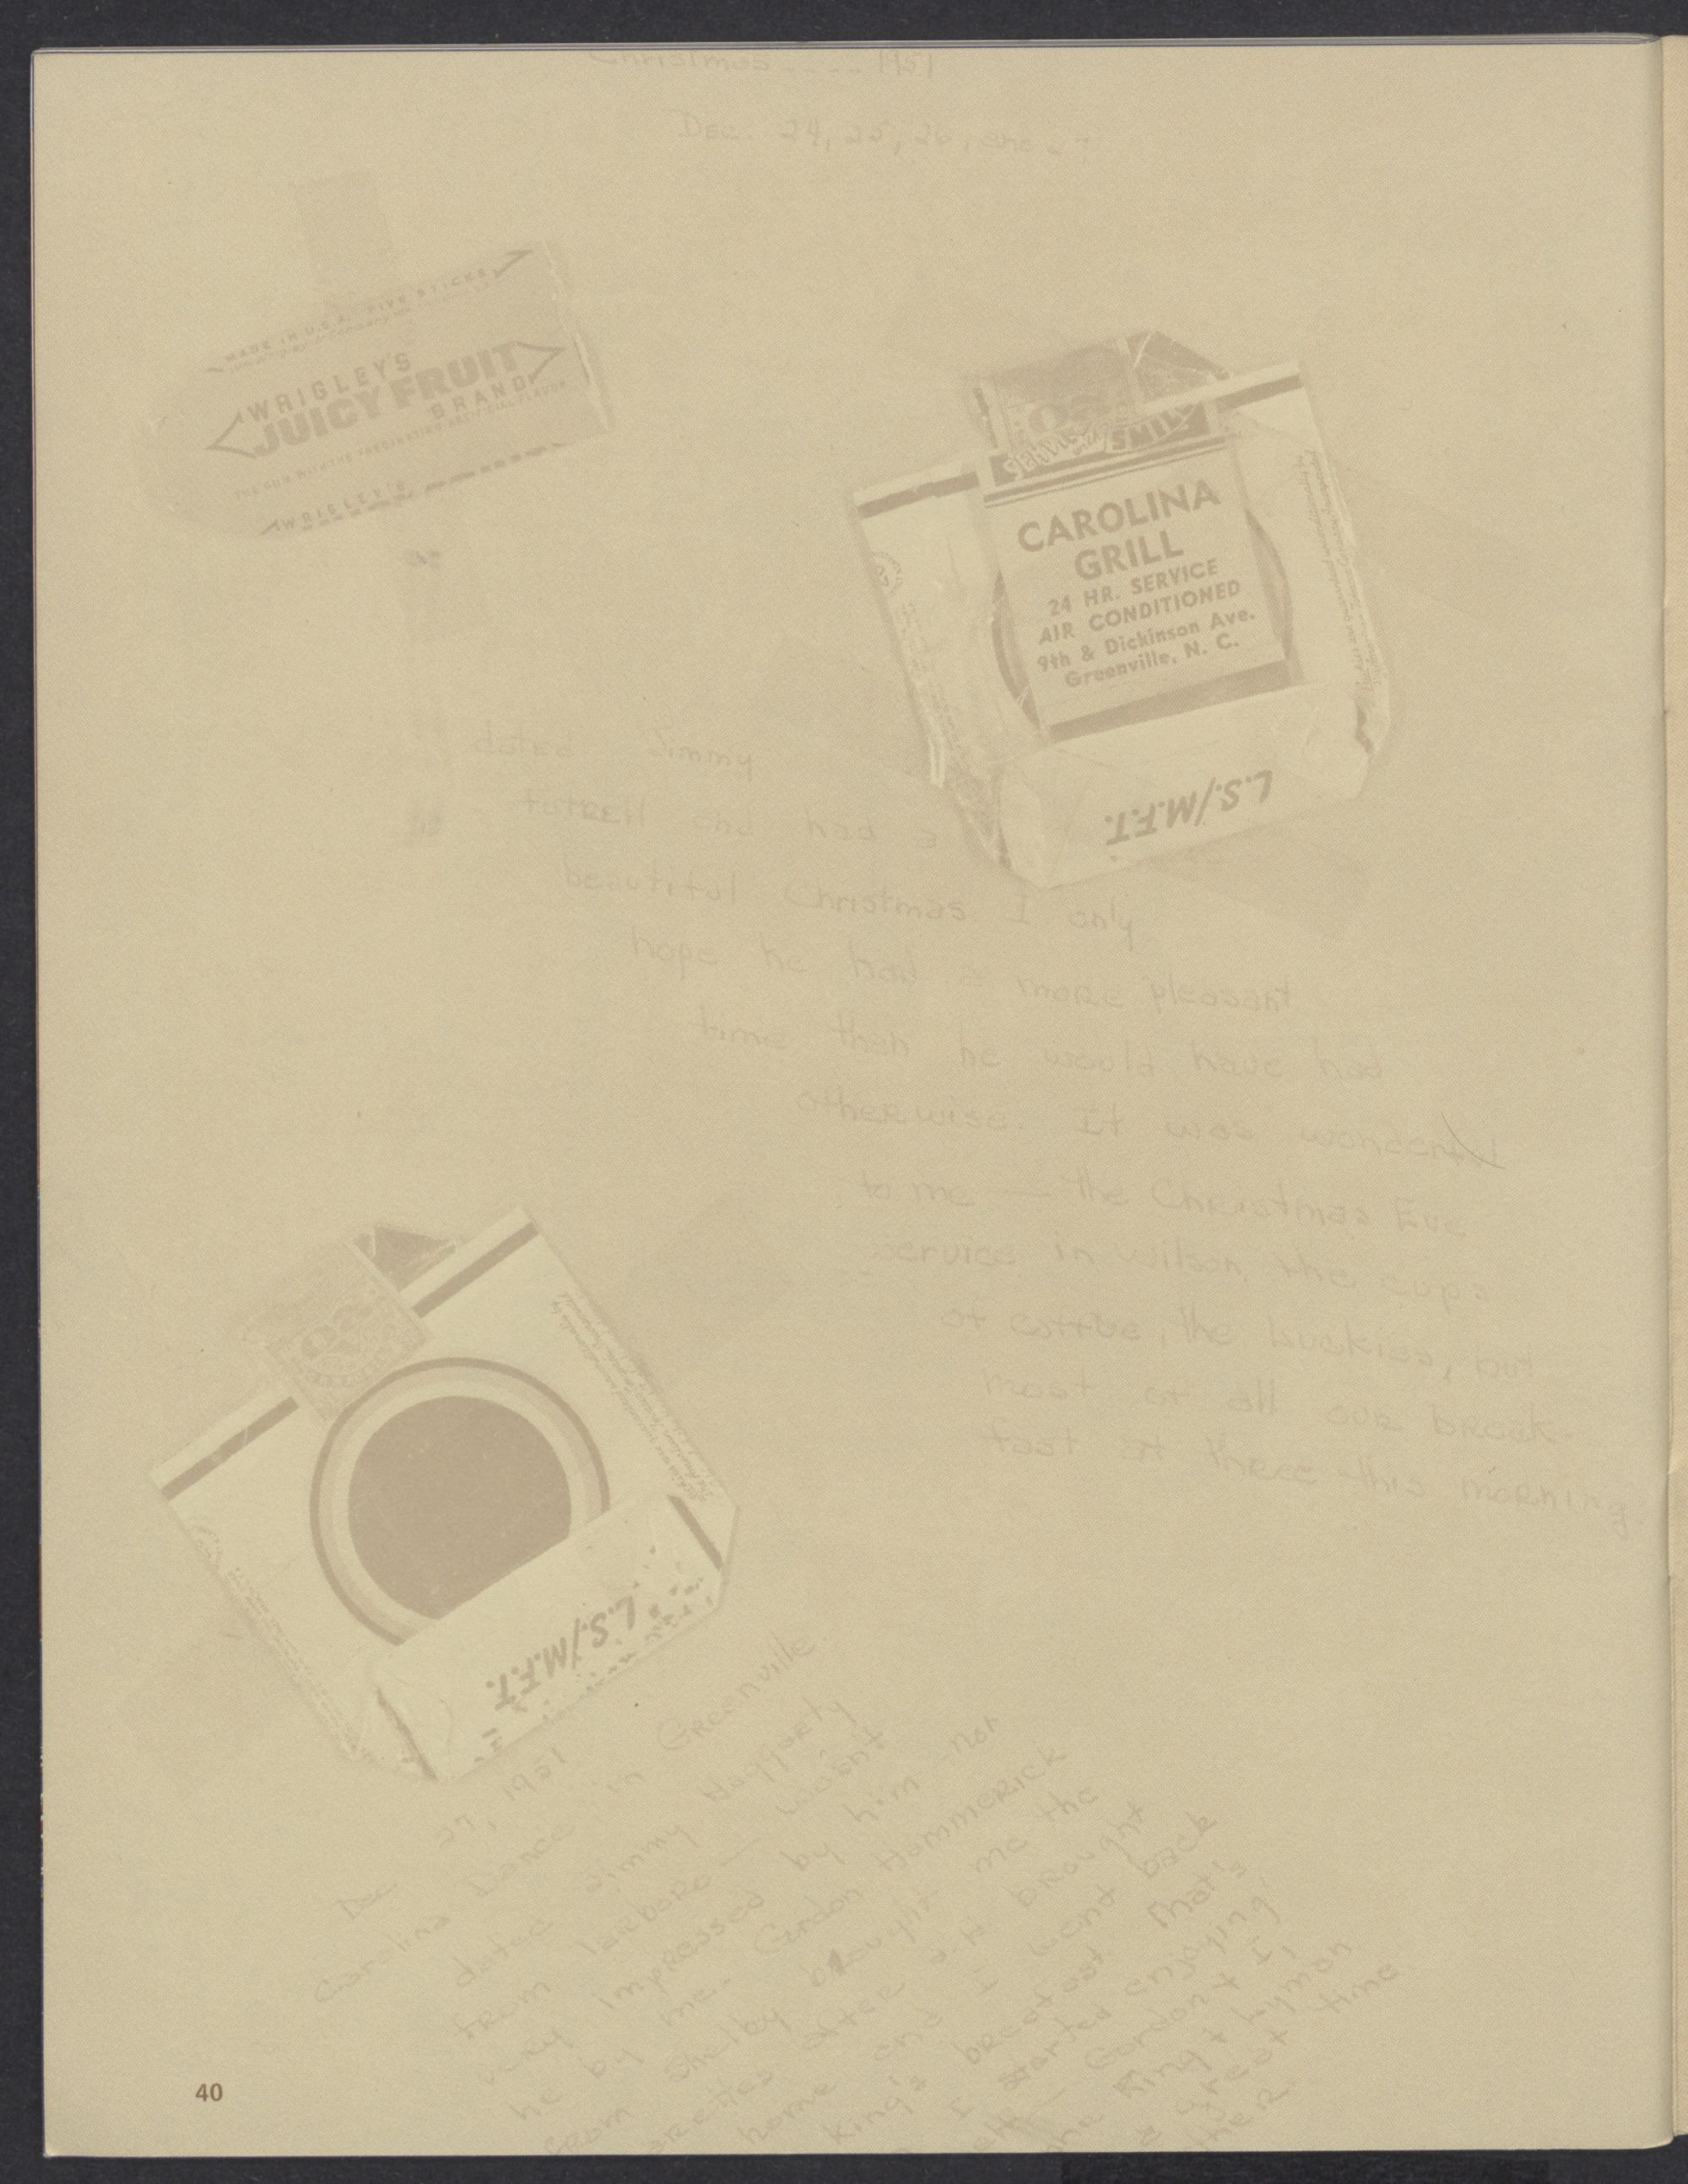 Christmas ---- 1951
Dec. 24, 25, 26, and 27
MADE IN U.S.A. FIVE STICKS
WRIGLEY'S
JUICY FRUIT
BRAND
THE GUM WITH THE FASCINATING ARTIFICIAL FLAVOR
WRIGLEY'S
SERVICE SMILE
CAROLINA
GRILL
24 HR. SERVICE
AIR CONDITIONED
9th & Dickinson Ave.
Greenville, N. C.
L.S./M.F.T.
dated Jimmy
Futrell and had a
beautiful Christmas I only
hope he had a more pleasant
time than he would have had
otherwise. It was wonderful
to me — the Christmas Eve
service in Wilson, the cups
of coffee, the Luckies, but
most of all our break-
fast at three this morning.
L.S./M.F.T.
Dec 27, 1951
Carolina Dance in Greenville.
dated Jimmy Haggarty
from Tarboro — wasn't
very impressed by him - nor
he by me. Gordon Hammerick
from Shelby brought me the
after brought
home and I went back
King's breakfast. That's
I started enjoying
Gordon + I,
King + Lyman
great time
40